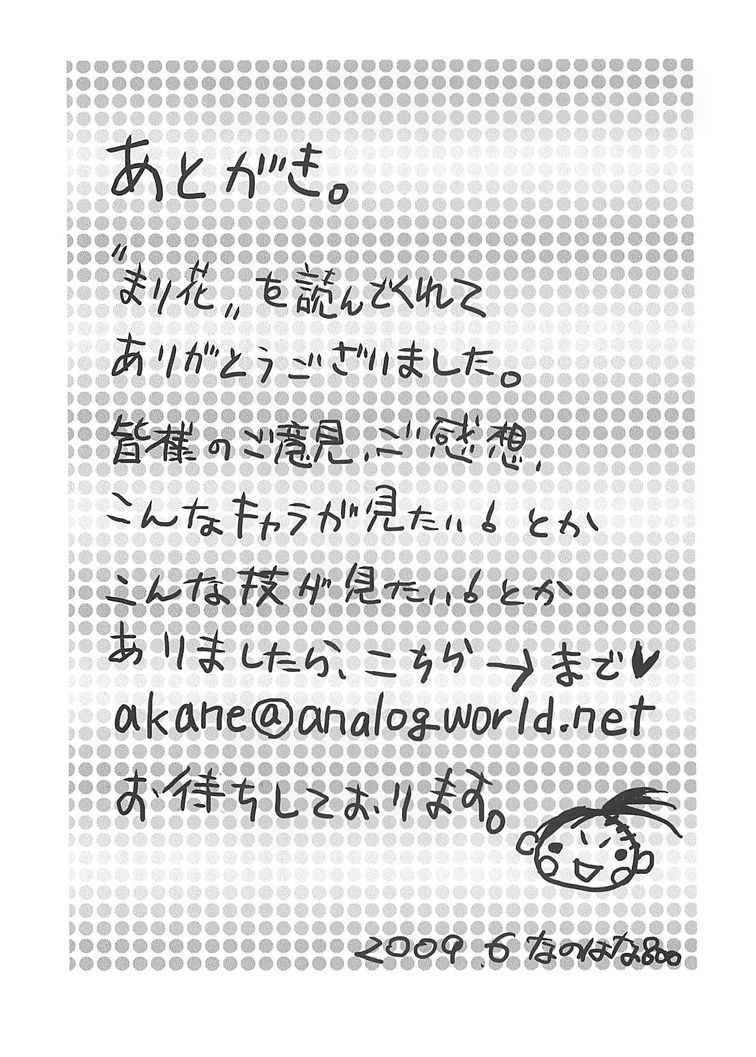 あとがき。
〝まり花〟を読んでくれて
ありがとうございました。
皆様のご意見、ご感想、
こんなキャラが見たい!とか
こんな技が見たい!とか
ありましたら、こちら→まで♥
akane@analogworld.net
お待ちしております。
2009.6 なのはな800